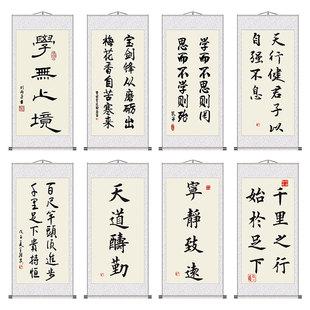 學無止境
宝剑锋从磨砺出
梅花香自苦寒来
学而不思则罔
思而不学则殆
天行健君子以
自强不息
百尺竿头须进步
千里足下贵持恒
天道醻勤
寧靜致遠
千里之行
始於足下